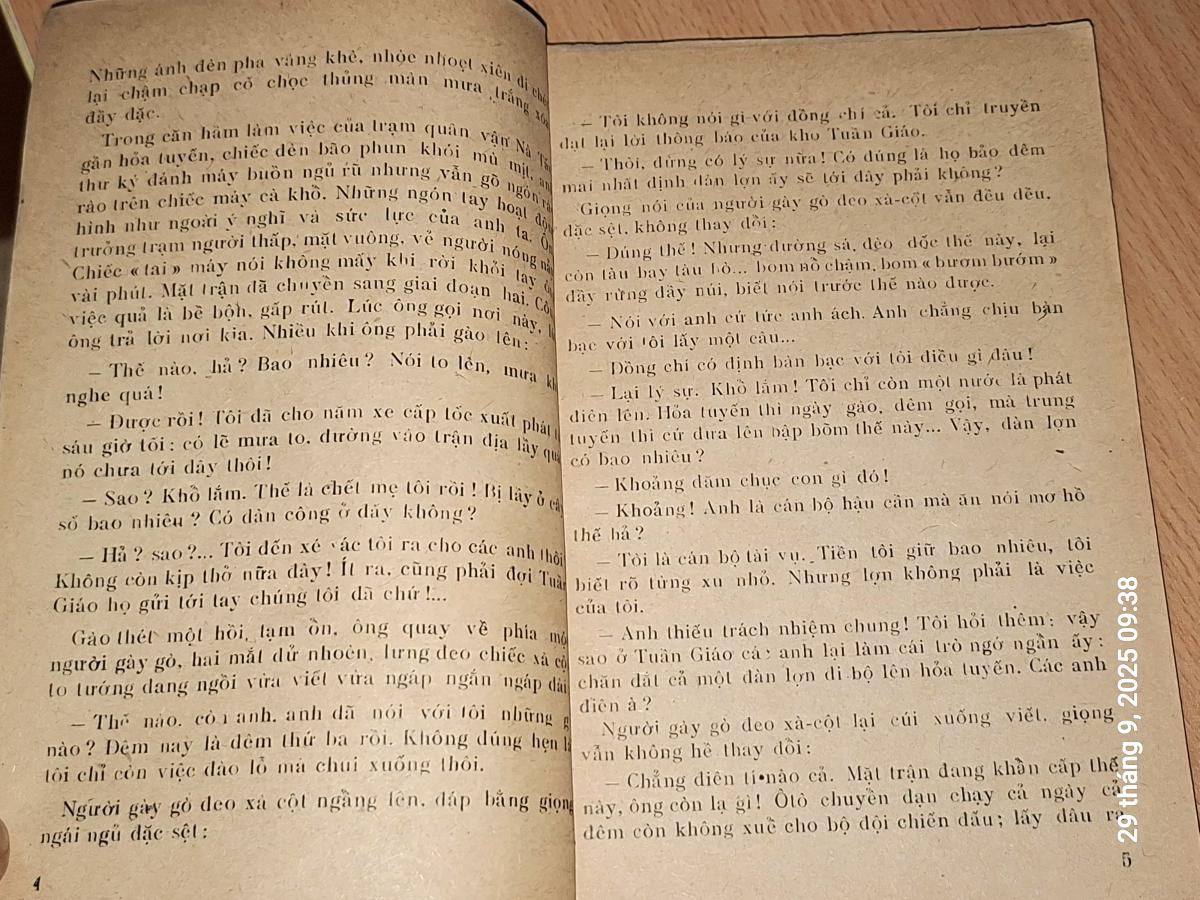 Những ánh đèn pha vàng khè, nhòe nhoẹt xiên đi
lại chậm chạp cố chọc thủng màn mưa trắng xóa
đầy đặc.
Trong căn hầm làm việc của trạm quân vận Nà
gần hỏa tuyến, chiếc đèn bão phun khói mù mịt,
thư ký đánh máy buồn ngủ rũ nhưng vẫn gõ ngón
rào trên chiếc máy cà khổ. Những ngón tay hoạt động
hình như ngoài ý nghĩ và sức lực của anh ta.
trưởng trạm người thấp, mặt vuông, vẻ người nóng
Chiếc « tai » máy nói không mấy khi rời khỏi tay
vài phút. Mặt trận đã chuyển sang giai đoạn hai.
việc quả là bề bộn, gấp rút. Lúc ông gọi nơi này,
ông trả lời nơi kia. Nhiều khi ông phải gào lên:
— Thế nào, hả? Bao nhiêu? Nói to lên, mưa
nghe quá!
— Được rồi! Tôi đã cho năm xe cấp tốc xuất phát
sáu giờ tối: có lẽ mưa to, đường vào trận địa lầy
nó chưa tới đây thôi!
— Sao? Khổ lắm. Thế là chết mẹ tôi rồi! Bị lầy ở
số bao nhiêu? Có dân công ở đấy không?
— Hả? sao?... Tôi đến xé xác tôi ra cho các anh thôi
Không còn kịp thở nữa đây! Ít ra, cũng phải đợi Tuần
Giáo họ gửi tới tay chúng tôi đã chứ!...
Gào thét một hồi, tạm ổn, ông quay về phía
người gày gò, hai mắt dử nhoèn, lưng đeo chiếc xà
to tướng đang ngồi vừa viết vừa ngáp ngắn ngáp dài
— Thế nào, còn anh, anh đã nói với tôi những
nào? Đêm nay là đêm thứ ba rồi. Không đúng hẹn
tôi chỉ còn việc đào lỗ mà chui xuống thôi.
Người gày gò đeo xà cột ngẩng lên, đáp bằng giọng
ngái ngủ đặc sệt:
4
— Tôi không nói gì với đồng chí cả. Tôi chỉ truyền
đạt lại lời thông báo của kho Tuần Giáo.
— Thôi, đừng có lý sự nữa! Có đúng là họ bảo đêm
mai nhất định đàn lợn ấy sẽ tới đây phải không?
Giọng nói của người gày gò đeo xà-cột vẫn đều đều,
đặc sệt, không thay đổi:
— Đúng thế! Nhưng đường sá, đèo dốc thế này, lại
còn tàu bay tàu bò... bom nổ chậm, bom « bươm bướm »
đầy rừng đầy núi, biết nói trước thế nào được.
— Nói với anh cứ tức anh ách. Anh chẳng chịu bàn
bạc với tôi lấy một câu...
— Đồng chí có định bàn bạc với tôi điều gì đâu!
— Lại lý sự. Khổ lắm! Tôi chỉ còn một nước là phát
điên lên. Hỏa tuyến thì ngày gào, đêm gọi, mà trung
tuyến thì cứ đưa lên bập bõm thế này... Vậy, đàn lợn
có bao nhiêu?
— Khoảng dăm chục con gì đó!
— Khoảng! Anh là cán bộ hậu cần mà ăn nói mơ hồ
thế hả?
— Tôi là cán bộ tài vụ. Tiền tôi giữ bao nhiêu, tôi
biết rõ từng xu nhỏ. Nhưng lợn không phải là việc
của tôi.
— Anh thiếu trách nhiệm chung! Tôi hỏi thêm: vậy
sao ở Tuần Giáo các anh lại làm cái trò ngớ ngẩn ấy:
chăn dắt cả một đàn lợn đi bộ lên hỏa tuyến. Các anh
điên à?
Người gày gò đeo xà-cột lại cúi xuống viết, giọng
vẫn không hề thay đổi:
— Chẳng điên tí nào cả. Mặt trận đang khẩn cấp thế
này, ông còn lạ gì! Ôtô chuyển đạn chạy cả ngày cả
đêm còn không xuể cho bộ đội chiến đấu; lấy đâu ra
5
29 tháng 9, 2025 09:38